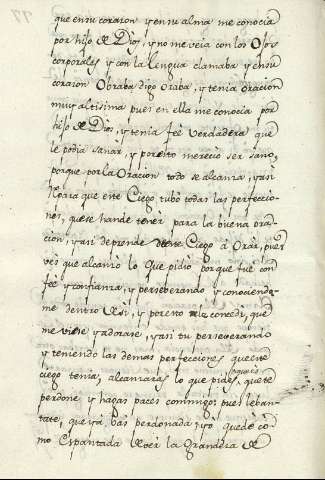 que en su corazon y en su alma me conocia
por hijo de Dios, y no me veia con los Ojos
corporales y con la Lengua clamaba y en su
corazon Obraba digo Oraba, y tenia oracion
muy altisima pues en ella me conocia por
hijo de Dios, y tenia feè Verdadera que
le podia sanar, y por esto mereciò ser sano,
porque por la Oracion todo se alcanza, y asi
para que este Ciego tubo todas las perfeccio-
nes, que se han de tener para la buena ora-
cion, y asi deprende de este Ciego à Orar, pues
ves que alcanzò lo que pidiò porque fue con
feè y confianza, y perseverando y conociendo-
me dentro de si, y por esto le concedi, que
me viese y adorase, y asi tu perseverando
y teniendo las demas perfecciones que este
ciego tenia, alcanzaràs lo que pides, que te
perdone y hagas paces commigo: pues leban-
tate, que yà bas perdonada; yo quedè co-
mo Espantada de ver la grandeza de